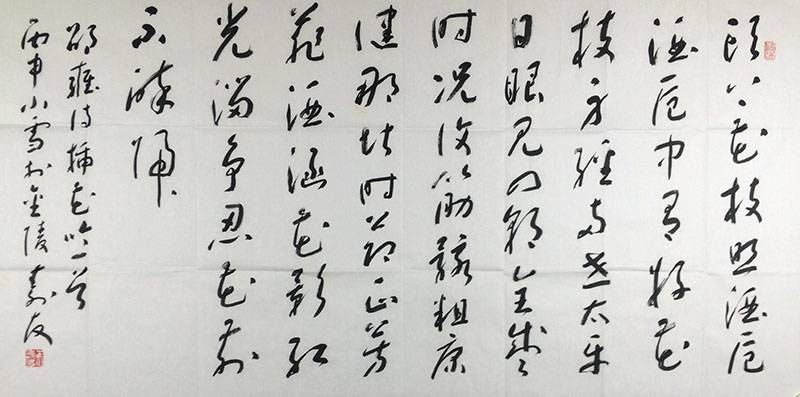 头上花枝照酒卮
酒卮中有好花
枝身经两世太平
日眼见四朝全盛
时况复筋骸粗康
健那堪时节正芳
菲酒涵花影红
光溜争忍花前
不醉归
邵雍诗插花吟一首
丙申小雪于金陵